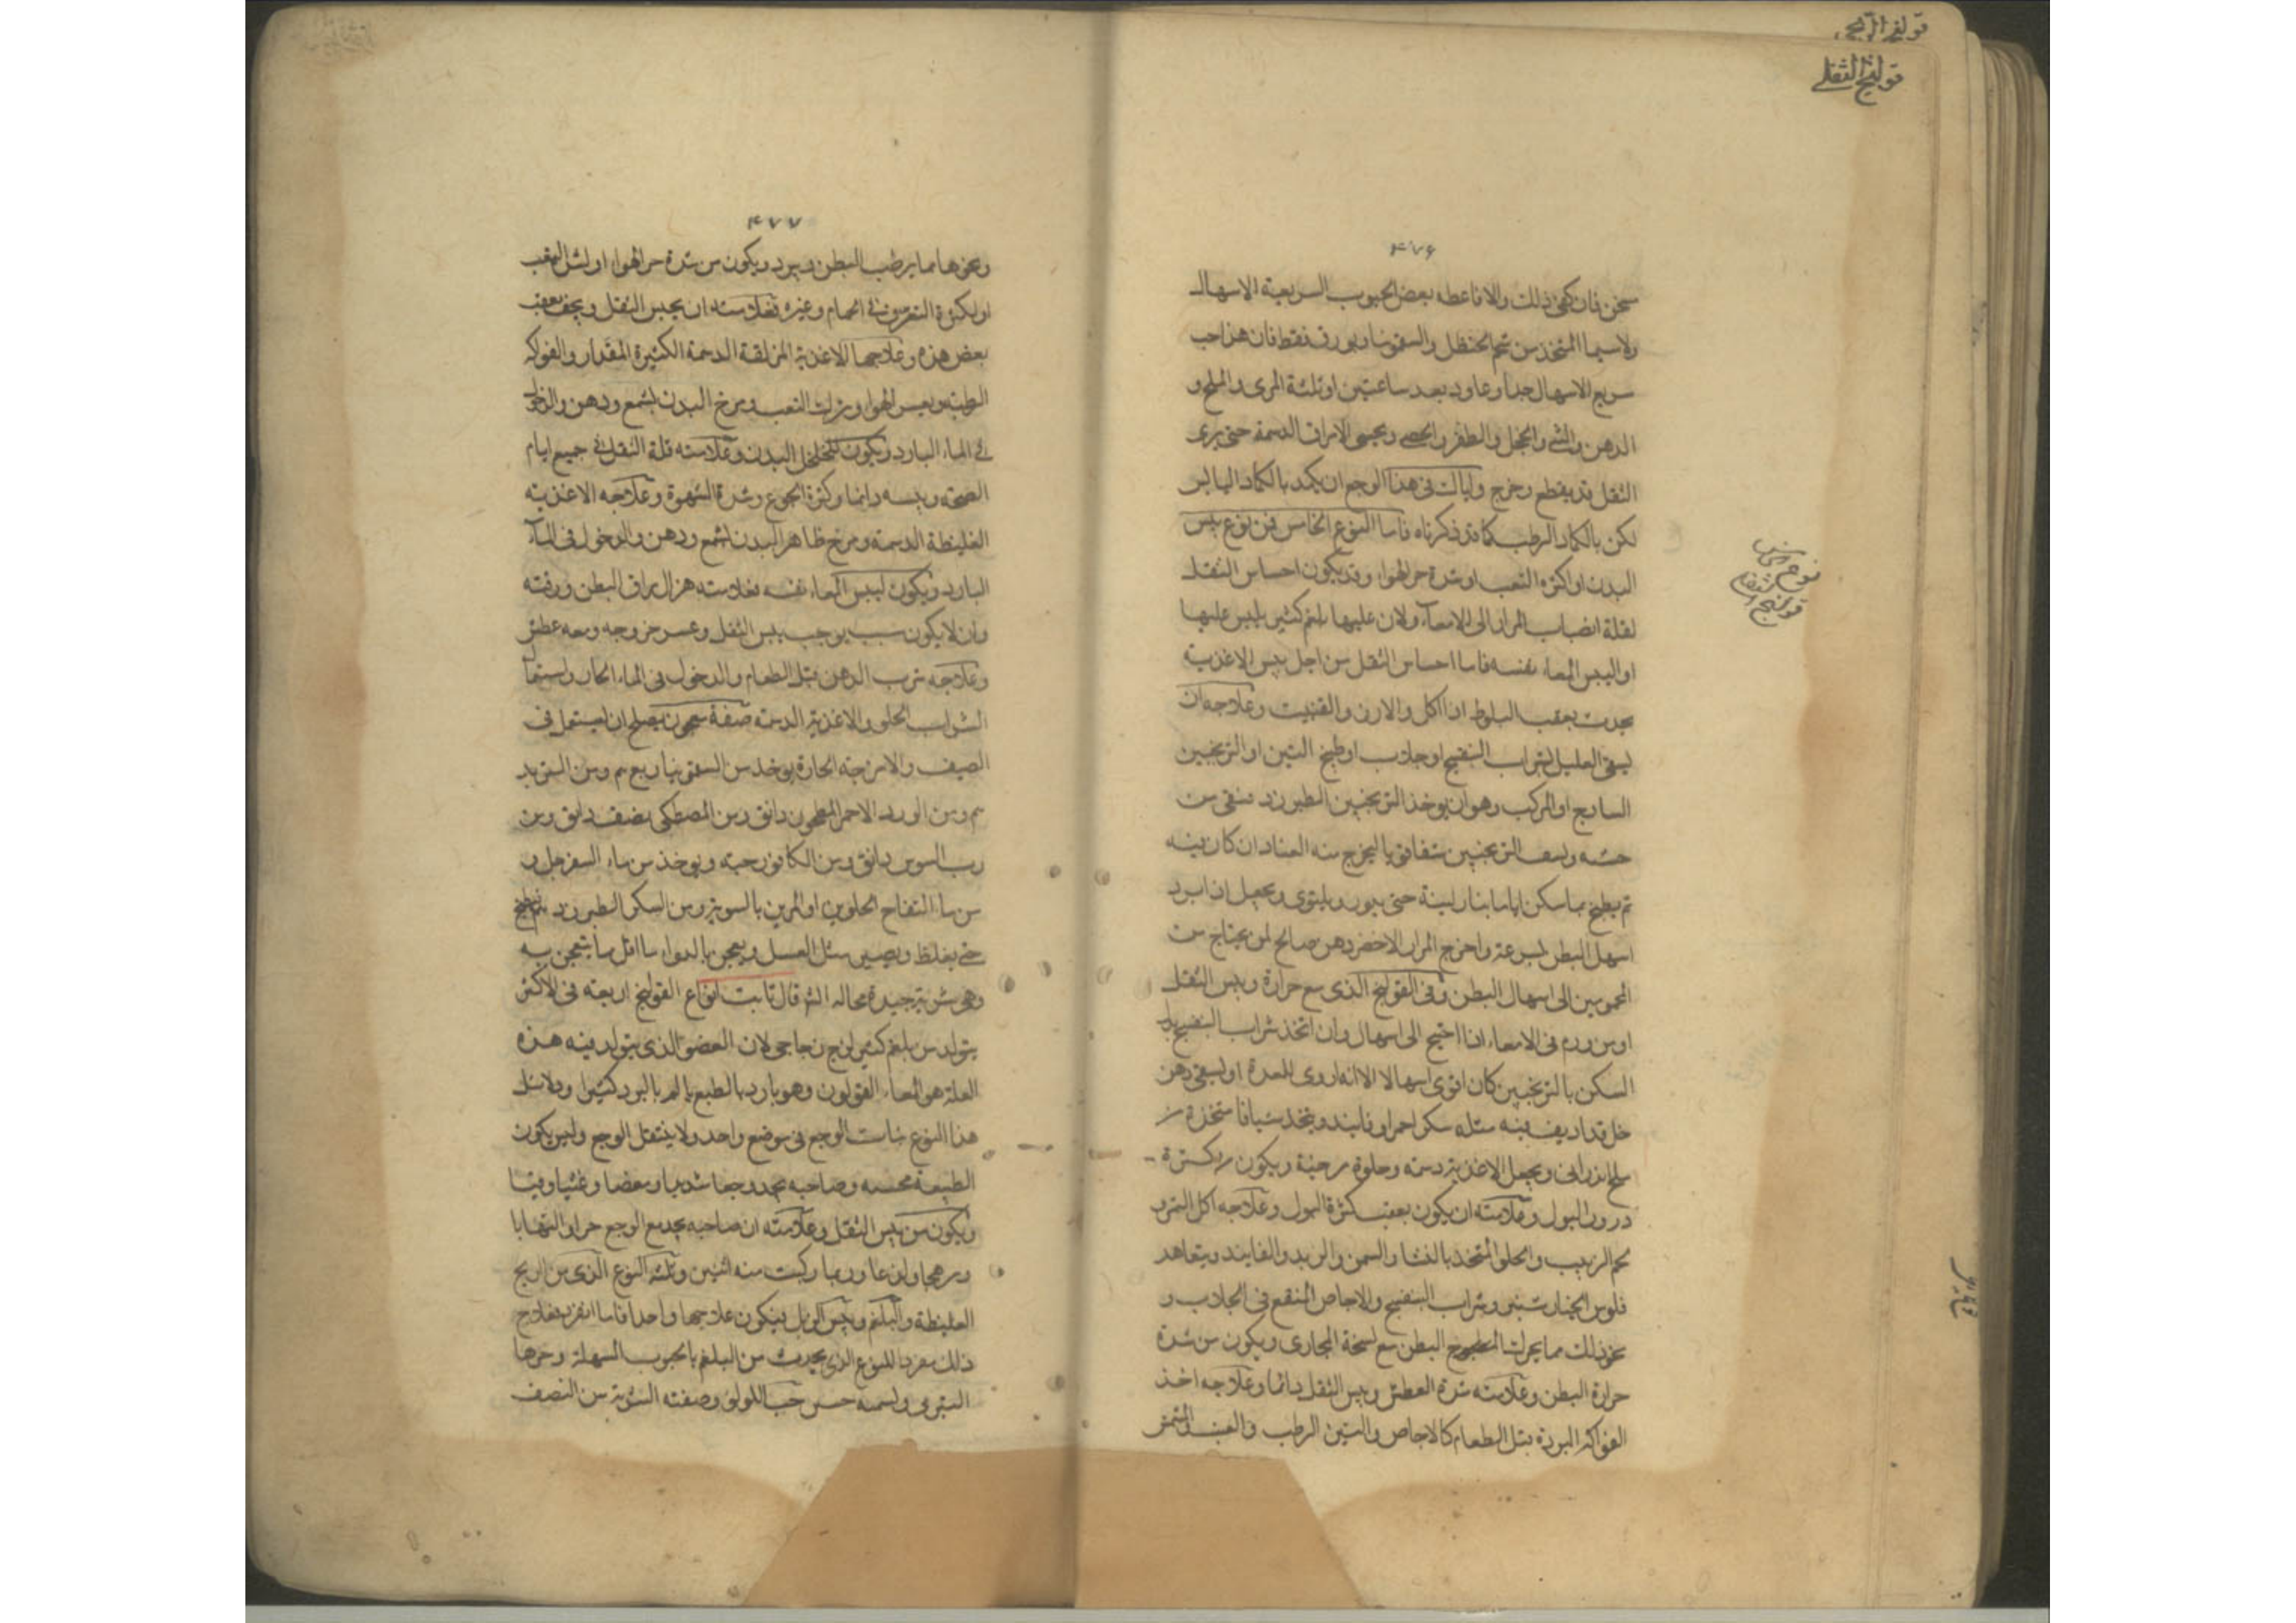 قولنج الريحي
قولنج الثفلي
٤٧٦
سخن فان كفى ذلك والا فاعطه بعض الحبوب السريعة الاسهال
ولاسيما المتخذ من شحم الحنظل والسقمونيا وبورق فقط فان هذا حب
سريع الاسهال جدا وعاود بعد ساعتين او ثلثة المرى والملح و
الدهن والشي والحجل والطفر والحصى ويحسى الامراق الدسمة حتى يرى
الثفل قد يقطع وخرج واياك فى هذا الوجع ان يكمد بالكماد اليابس
لكن بالكماد الرطب كما قد ذكرناه فاما النوع الخامس فمن نوع يبس
البدن او اكثره التعب او شدة حر الهوا وقد يكون احساس الثفل
لقلة انصباب المرار الى الامعاء ولان عليها بلغم كثير يلبس عليها
او اليبس المعاء نفسه فاما احساس الثفل من اجل يبس الاغذية
يحدث بعقب البلوط اذا اكل والارز والقنبيت وعلاجه ان
يسقى العليل شراب البنفسج او جلاب او طبيخ التين او الترنجبين
الساذج او المركب وهو ان يوخذ الترنجبين الطبرزد منقى من
خشبه ونصف الترنجبين سفا فوقيا ليخرج منه العناد ان كان فيه
ثم يطبخ بماسكن اياما بنار لينة حتى يبور ويلتوى ويحصل اذا برد
اسهل البطن بسرعة واخرج المرار الاخضر دهن صالح لمن يحتاج من
المحمومين الى اسهال البطن وفى القولنج الذى مع حرارة ويبس الثفل
او من ورم فى الامعاء اذا احتيج الى اسهال وان اتخذ شراب البنفسج بدل
السكن بالترنجبين كان اقوى اسهالا الا انه اروى للمعدة او يسقى دهن
خل قد اديف فيه مثله سكر احمر او فانيد ويتخذ شيافا متخذه من
ملح اندرانى ويجعل الاغذية دسمه وحلوة مرخية ويكون من كثرة
درور البول وعلامته ان يكون بعقب كثرة البول وعلاجه اكل التمر و
لحم الزبيب والحلو المتخذ بالنشا والسمن والزبد والفانيد ويتعاهد
فلوس الخيار شنبر وشراب البنفسج والاجاص المنقع فى الجلاب و
نحو ذلك مما يحرك البطن مع لسخة المجارى ويكون من شدة
حرارة البطن وعلامته شدة العطش ويبس الثفل دائما وعلاجه اخذ
الفواكه المبردة قبل الطعام كالاجاص والتين الرطب والعنب والمشمش
نوع خامس
قولنج الثفلي
٤٧٧
ونحوها مما يرطب البطن ويبرد ويكون من شدة حر الهوا او لشل التعب
او لكثرة التعرق فى الحمام وغيره فعلامته ان يحبس الثفل ويجف بعقب
بعض هذه وعلاجها الاغذية المزلقة الدسمة الكثيرة المقدار والفواكه
الرطبة وتغيير الهوا وترك التعب ومرخ البدن بشمع ودهن والدخول
فى الماء البارد ويكون لتخلخل البدن وعلامته قلة الثفل فى جميع ايام
الصحة ويبسه دائما وكثرة الجوع وشدة الشهوة وعلاجه الاغذية
الغليظة الدسمة ومرخ ظاهر البدن بشمع ودهن والدخول فى الماء
البارد ويكون ليبس المعاء نفسه فعلامته هزال مراق البطن ورقته
وان لا يكون سبب يوجب يبس الثفل وعسر خروجه ومعه عطش
وعلاجه شرب الدهن قبل الطعام والدخول فى الماء الحار واستعمال
الشراب الحلو والاغذية الدسمة صفة معجون يصلح ان يستعمل فى
الصيف والامزجة الحارة يوخذ من السقمونيا ربع م ومن التربد
م ومن الورد الاحمر المطحون دانق ومن المصطكى نصف دانق ومن
رب السوس دانق ومن الكافور حبة ويوخذ من ماء السفرجل و
من ماء التفاح الحلوين او المزين بالسوية ومن السكر الطبرزد ثم يطبخ
حتى يغلظ ويصير مثل العسل ويعجن بالدواء ما اقل ما يتعجن به
وهى شربة جيدة بحاله الثر قال ثابت انواع القولنج اربعة فى الاكثر
يتولد من بلغم كيموس لزج زجاجى لان العضو الذى يتولد فيه هذه
العلة هو المعاء القولون وهو بارد بالطبع يالم بالبرد كثيرا ودلائل
هذا النوع ثبات الوجع فى موضع واحد ولا ينتقل الوجع وليس يكون
الطبيعة محتبسه وصاحبه يجد وجعا شديدا ومغصا وغثيا وقيئا
ويكون من يبس الثفل وعلامته ان صاحبه يجد مع الوجع حرا والتهابا
ووهجا ولذعا وربما ركبت منه اثنين وثلثه النوع الذى من الريح
الغليظة والبلغم ويبس الزبل فيكون علاجها واحدا فاما انفرد فعلاج
ذلك مفردا للنوع الذى يحدث من البلغم بالحبوب المسهلة وخيرها
التبربى ولسمه حسن حب اللولو وصفته الشربة من النصف